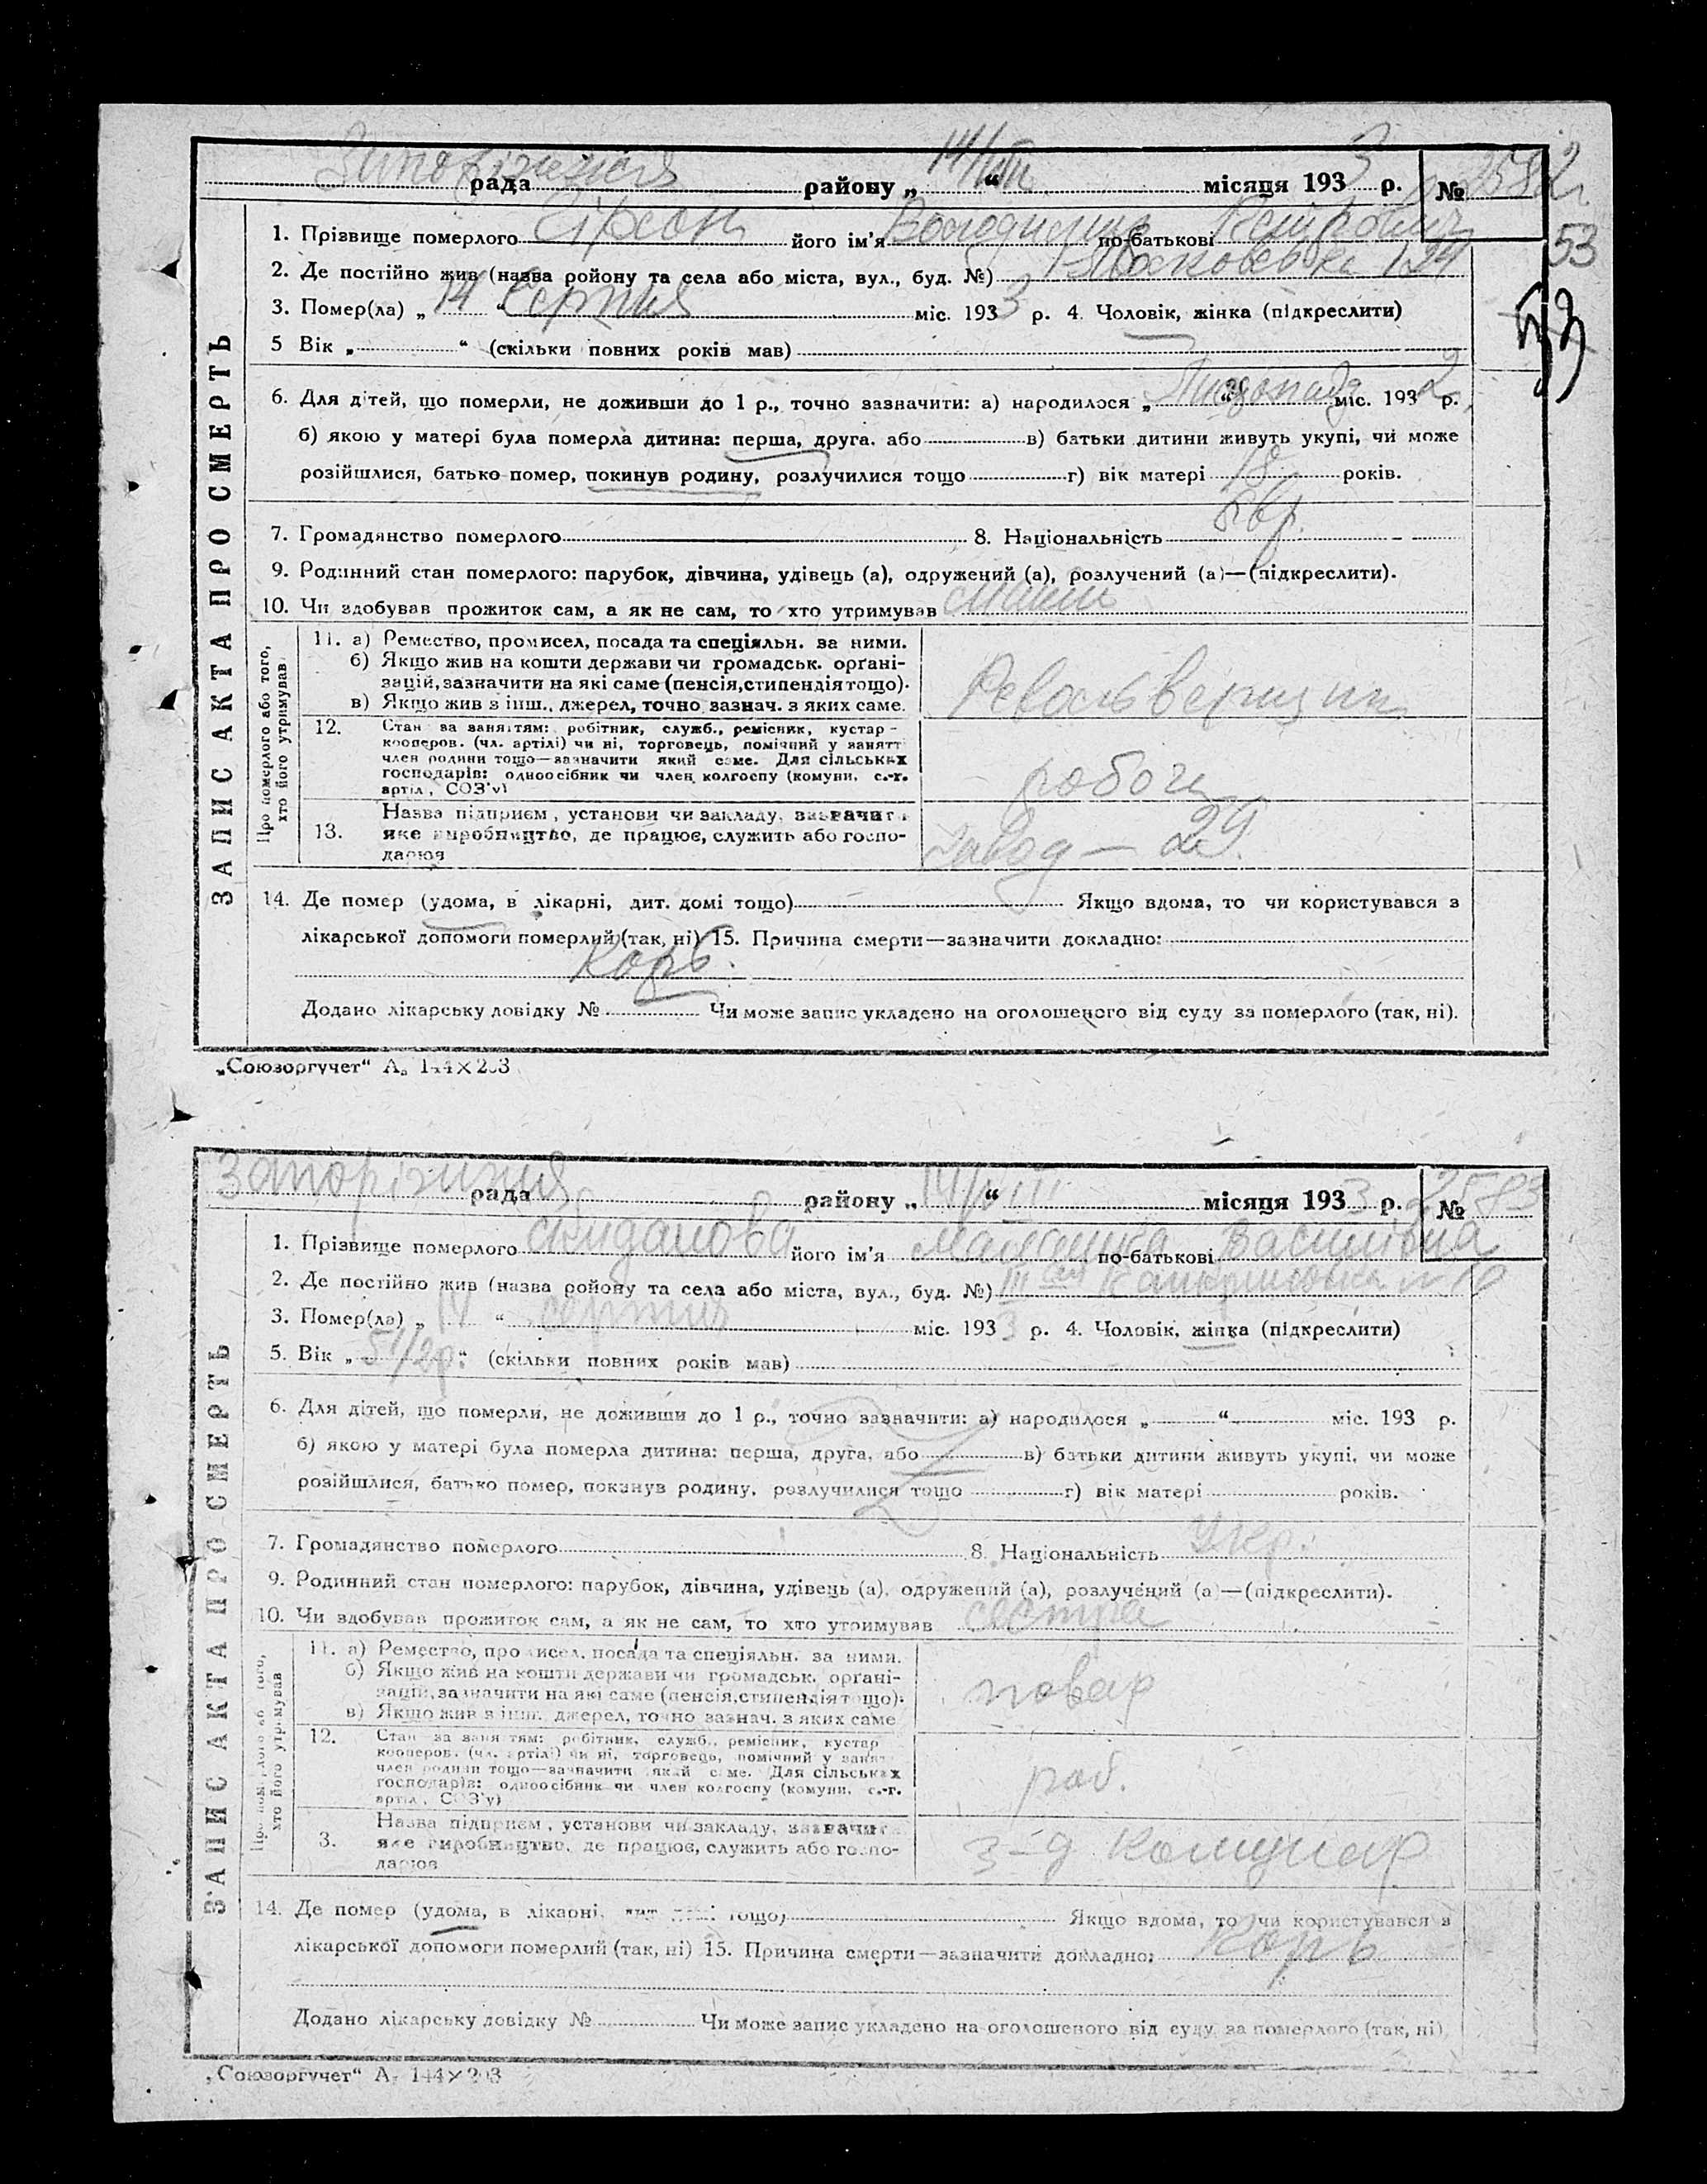 14/VIII 3 3582
рада району „ “ місяця 193 р. №
53
1. Прізвище померлого його ім'я Володимир по-батькові Петрович
2. Де постійно жив (назва ройону та села або міста, вул., буд. №) 124
3. Помер(ла) „ 14 “ Серпня міс. 1933 р. 4. Чоловік, жінка (підкреслити)
53
5 Вік „ “ (скільки повних років мав)
6. Для дітей, що померли, не доживши до 1 р., точно зазначити: а) народилося „ “ Листопада міс. 1932 р.
б) якою у матері була померла дитина: перша, друга. або в) батьки дитини живуть укупі, чи може
розійшлися, батько помер, покинув родину, розлучилися тощо г) вік матері 18 років.
7. Громадянство померлого 8. Національність Євр.
9. Родинний стан померлого: парубок, дівчина, удівець (а), одружений (а), розлучений (а)—(підкреслити).
10. Чи здобував прожиток сам, а як не сам, то хто утримував мати
ЗАПИС АКТА ПРО СМЕРТЬ
Про померлого або того, хто його утримував
11. а) Ремество, промисел, посада та спеціяльн. за ними.
б) Якщо жив на кошти держави чи громадськ. орґані-
зацій, зазначити на які саме (пенсія, стипендія тощо).
в) Якщо жив з інш., джерел, точно зазнач. з яких саме.
Револьверщик
12. Стан за заняттям: робітник, служб., ремісник, кустар -
кооперов. (чл. артілі) чи ні, торговець, помічний у занятт
член родини тощо—зазначити який саме. Для сільських
господарів: одноосібник чи член колгоспу (комуни, с.-г.
артіл, СОЗ'у)
робоч
13. Назва підприєм, установи чи закладу, зазначит
яке виробництво, де працює, служить або госпо-
дарює
завод — 29
14. Де помер (удома, в лікарні, дит. домі тощо) Якщо вдома, то чи користувався з
лікарської допомоги померлий (так, ні) 15. Причина смерти—зазначити докладно:
Корь.
Додано лікарську довідку № Чи може запис укладено на оголошеного від суду за померлого (так, ні).
„Союзоргучет“ А₅ 144×203
Запоріжжя 14/VIII 3 3583
рада району „ “ місяця 193 р. №
1. Прізвище померлого його ім'я по-батькові Василівна
2. Де постійно жив (назва ройону та села або міста, вул., буд. №) III
3. Помер(ла) „ 14 “ серпня міс. 1933 р. 4. Чоловік, жінка (підкреслити)
5. Вік „ 5 1/2 р. “ (скільки повних років мав)
6. Для дітей, що померли, не доживши до 1 р., точно зазначити: а) народилося „ “ міс. 193 р.
б) якою у матері була померла дитина: перша, друга, або в) батьки дитини живуть укупі, чи може
розійшлися, батько помер, покинув родину, розлучилися тощо г) вік матері років.
7. Громадянство померлого 8. Національність Укр.
9. Родинний стан померлого: парубок, дівчина, удівець (а), одружений (а), розлучений (а)—(підкреслити).
10. Чи здобував прожиток сам, а як не сам, то хто утримував сестра
ЗАПИС АКТА ПРО СМЕРТЬ
11. а) Ремество, промисел, посада та спеціяльн. за ними.
б) Якщо жив на кошти держави чи громадськ. орґані-
зацій, зазначити на які саме (пенсія, стипендія тощо).
в) Якщо жив з інш. джерел, точно зазнач. з яких саме
повар
12. Стан за заняттям: робітник, служб., ремісник, кустар
кооперов. (чл. артілі) чи ні, торговець, помічний у занят
член родини тощо—зазначити який саме. Для сільських
господарів: одноосібник чи член колгоспу (комуни, с.-г.
артіл, СОЗ'у)
роб.
3. Назва підприєм, установи чи закладу, зазначит
яке виробництво, де працює, служить або госпо-
дарює
з-д Комунар
14. Де помер (удома, в лікарні, дит. домі тощо) Якщо вдома, то чи користувався з
лікарської допомоги померлий (так, ні) 15. Причина смерти—зазначити докладно: Корь
Додано лікарську довідку № Чи може запис укладено на оголошеного від суду за померлого (так, ні)
„Союзоргучет“ А₅ 144×203